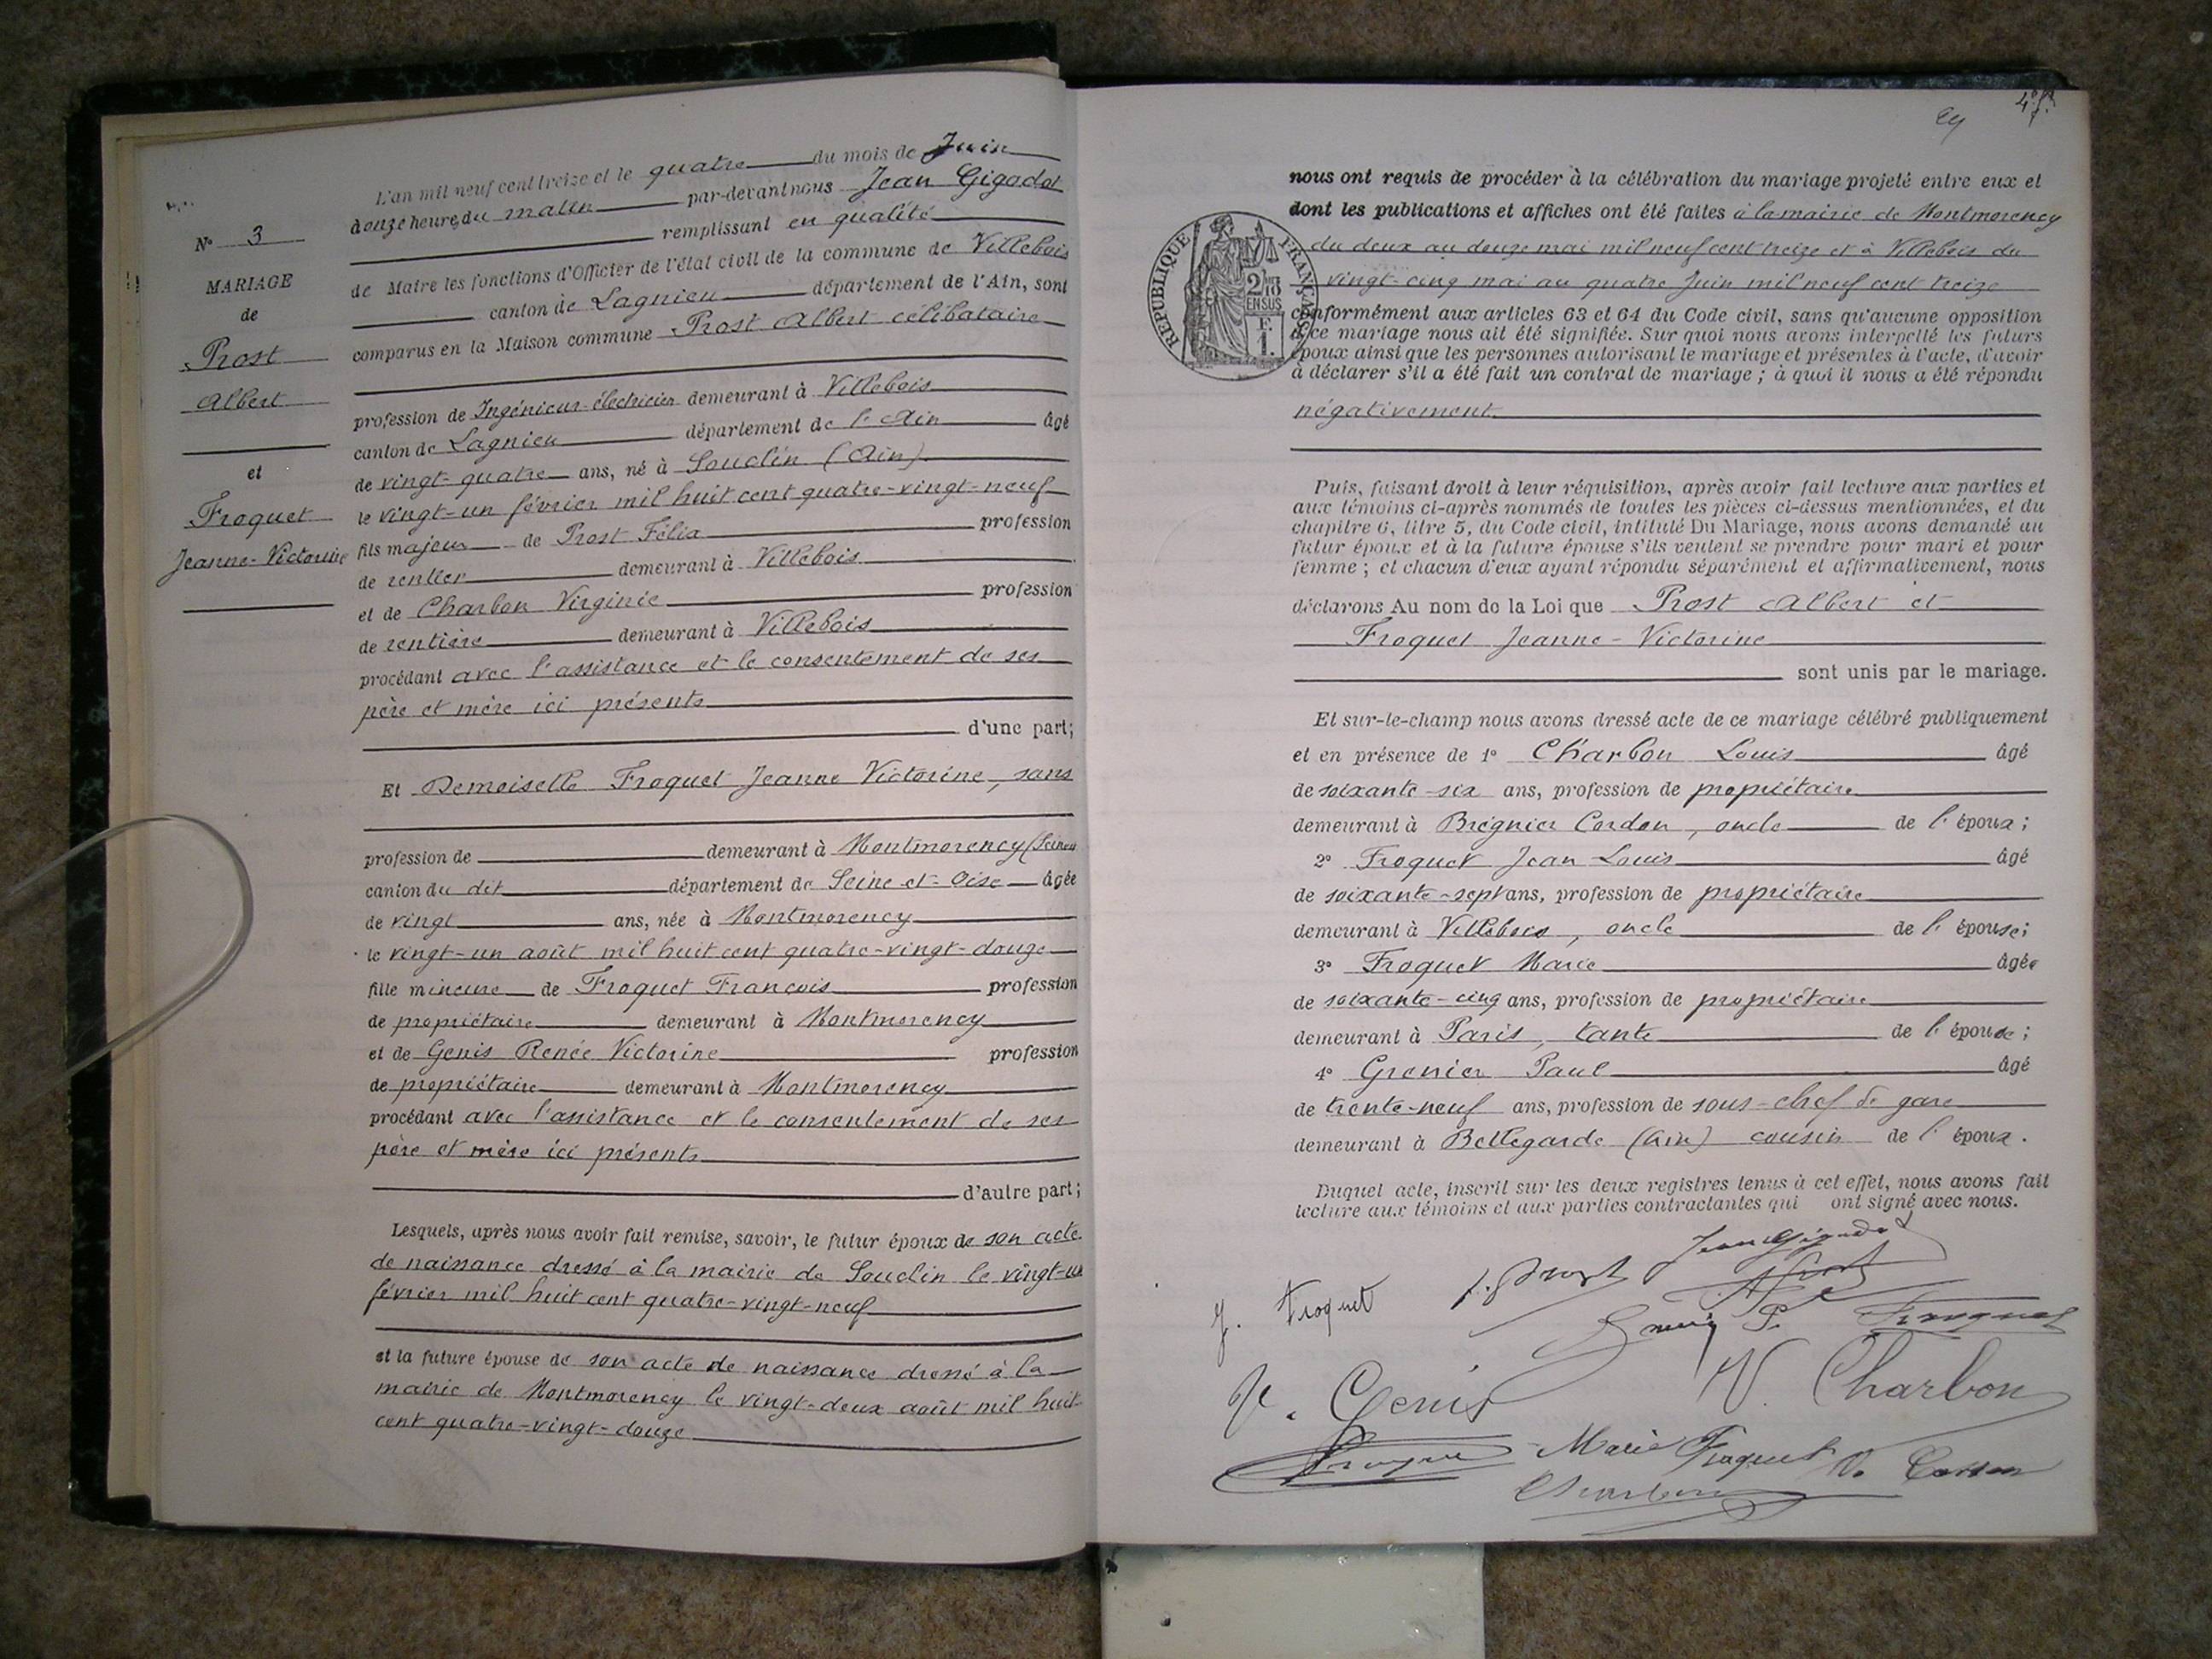 N° 3
MARIAGE
de
Prost
Albert
et
Froquet
Jeanne-Victorine
L'an mil neuf cent treize et le quatre du mois de Juin
à onze heures du matin par-devant nous Jean Gigodot
remplissant en qualité
de Maire les fonctions d'Officier de l'état civil de la commune de Villebois
canton de Lagnieu département de l'Ain, sont
comparus en la Maison commune Prost Albert célibataire
profession de Ingénieur-électricien demeurant à Villebois
canton de Lagnieu département de l'Ain âgé
de vingt-quatre ans, né à Souclin (Ain)
le vingt-un février mil huit cent quatre-vingt-neuf
fils majeur de Prost Félix profession
de rentier demeurant à Villebois
et de Charbon Virginie profession
de rentière demeurant à Villebois
procédant avec l'assistance et le consentement de ses
père et mère ici présents
d'une part;
Et Demoiselle Froquet Jeanne Victorine, sans
profession de demeurant à Montmorency
canton du dit département de Seine-et-Oise âgée
de vingt ans, née à Montmorency
le vingt-un août mil huit cent quatre-vingt-douze
fille mineure de Froquet François profession
de propriétaire demeurant à Montmorency
et de Genis Renée Victorine profession
de propriétaire demeurant à Montmorency
procédant avec l'assistance et le consentement de ses
père et mère ici présents
d'autre part;
Lesquels, après nous avoir fait remise, savoir, le futur époux de son acte
de naissance dressé à la mairie de Souclin le vingt-un
février mil huit cent quatre-vingt-neuf
et la future épouse de son acte de naissance dressé à la
mairie de Montmorency le vingt-deux août mil huit
cent quatre-vingt-douze
nous ont requis de procéder à la célébration du mariage projeté entre eux et
dont les publications et affiches ont été faites à la mairie de Montmorency
du deux au douze mai mil neuf cent treize et à Villebois du
vingt-cinq mai au quatre Juin mil neuf cent treize
REPUBLIQUE FRANÇAISE
2/10 EN SUS
F. 1.
conformément aux articles 63 et 64 du Code civil, sans qu'aucune opposition
à ce mariage nous ait été signifiée. Sur quoi nous avons interpellé les futurs
époux ainsi que les personnes autorisant le mariage et présentes à l'acte, d'avoir
à déclarer s'il a été fait un contrat de mariage; à quoi il nous a été répondu
négativement
Puis, faisant droit à leur réquisition, après avoir fait lecture aux parties et
aux témoins ci-après nommés de toutes les pièces ci-dessus mentionnées, et du
chapitre 6, titre 5, du Code civil, intitulé Du Mariage, nous avons demandé au
futur époux et à la future épouse s'ils veulent se prendre pour mari et pour
femme; et chacun d'eux ayant répondu séparément et affirmativement, nous
déclarons Au nom de la Loi que Prost Albert et
Froquet Jeanne-Victorine
sont unis par le mariage.
Et sur-le-champ nous avons dressé acte de ce mariage célébré publiquement
et en présence de 1° Charbon Louis âgé
de soixante-six ans, profession de propriétaire
demeurant à Brégnier Cordon, oncle de l'époux;
2° Froquet Jean Louis âgé
de soixante-sept ans, profession de propriétaire
demeurant à Villebois, oncle de l'épouse;
3° Froquet Marie âgée
de soixante-cinq ans, profession de propriétaire
demeurant à Paris, tante de l'épouse;
4° Grenier Paul âgé
de trente-neuf ans, profession de sous-chef de gare
demeurant à Bellegarde (Ain) cousin de l'époux.
Duquel acte, inscrit sur les deux registres tenus à cet effet, nous avons fait
lecture aux témoins et aux parties contractantes qui ont signé avec nous.
Jean Gigodot
J. Froquet Prost
Froquet
V. Genis V. Charbon
Marie Froquet
Charbon